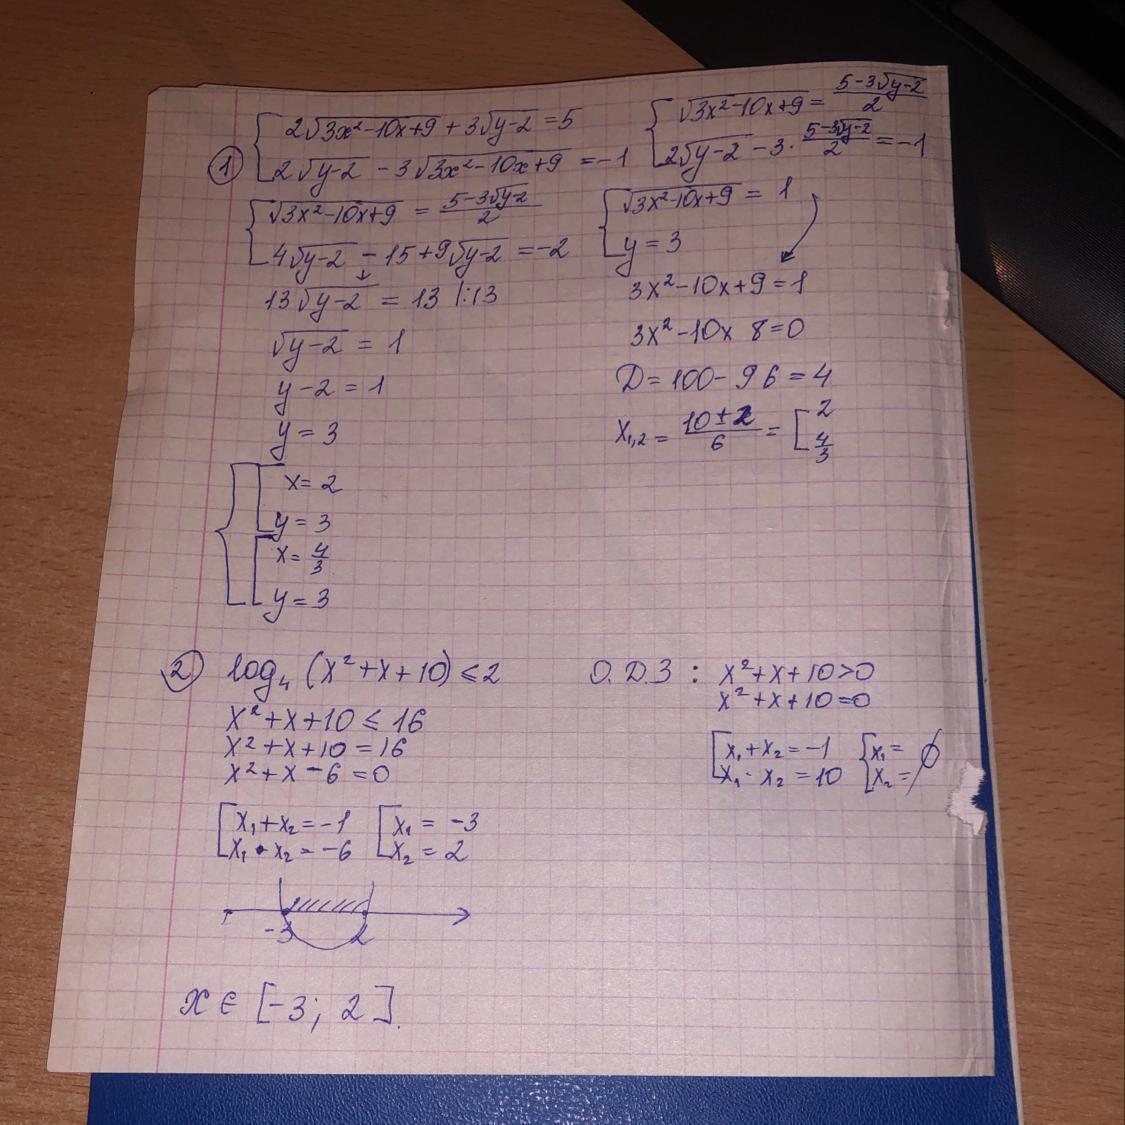 1
{ 2√(3x²-10x+9) + 3√(y-2) = 5
2√(y-2) - 3√(3x²-10x+9) = -1
{ √(3x²-10x+9) = (5-3√(y-2))/2
2√(y-2) - 3·(5-3√(y-2))/2 = -1
{ √(3x²-10x+9) = (5-3√(y-2))/2
4√(y-2) - 15+9√(y-2) = -2
13√(y-2) = 13 |:13
√(y-2) = 1
y-2 = 1
y = 3
{ √(3x²-10x+9) = 1
y = 3
3x²-10x+9 = 1
3x²-10x 8=0
D = 100 - 96 = 4
x₁,₂ = (10±2)/6 = [ 2
4/3
{ [ x = 2
y = 3
[ x = 4/3
y = 3
2 log₄ (x²+x+10) ≤ 2
x²+x+10 ≤ 16
x²+x+10 = 16
x²+x-6 = 0
[ x₁+x₂ = -1
x₁·x₂ = -6
[ x₁ = -3
x₂ = 2
-3 2
x ∈ [-3; 2].
О.Д.З : x²+x+10>0
x²+x+10=0
[ x₁+x₂ = -1
x₁·x₂ = 10
{ x₁ =
x₂ = ∅